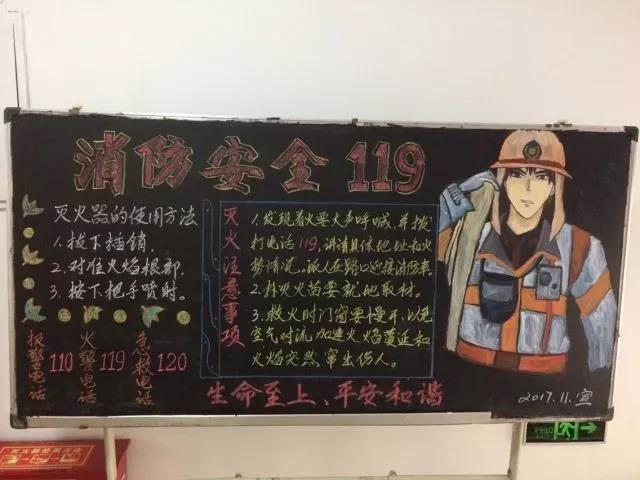 消防安全 119
灭火器的使用方法
1.拔下插销.
2.对住火焰根部.
3.按下把手喷射.
报警电话 110
火警电话 119
急救电话 120
灭火注意事项
1.发现着火要大声呼喊,并拨
打电话119,讲清具体地址和火
势情况。派人在路口迎接消防车.
2.扑灭火苗要就地取材.
3.救火时门窗要慢开,以免
空气对流加速火焰蔓延和
火焰突然窜出伤人。
生命至上、平安和谐
2017.11.宣